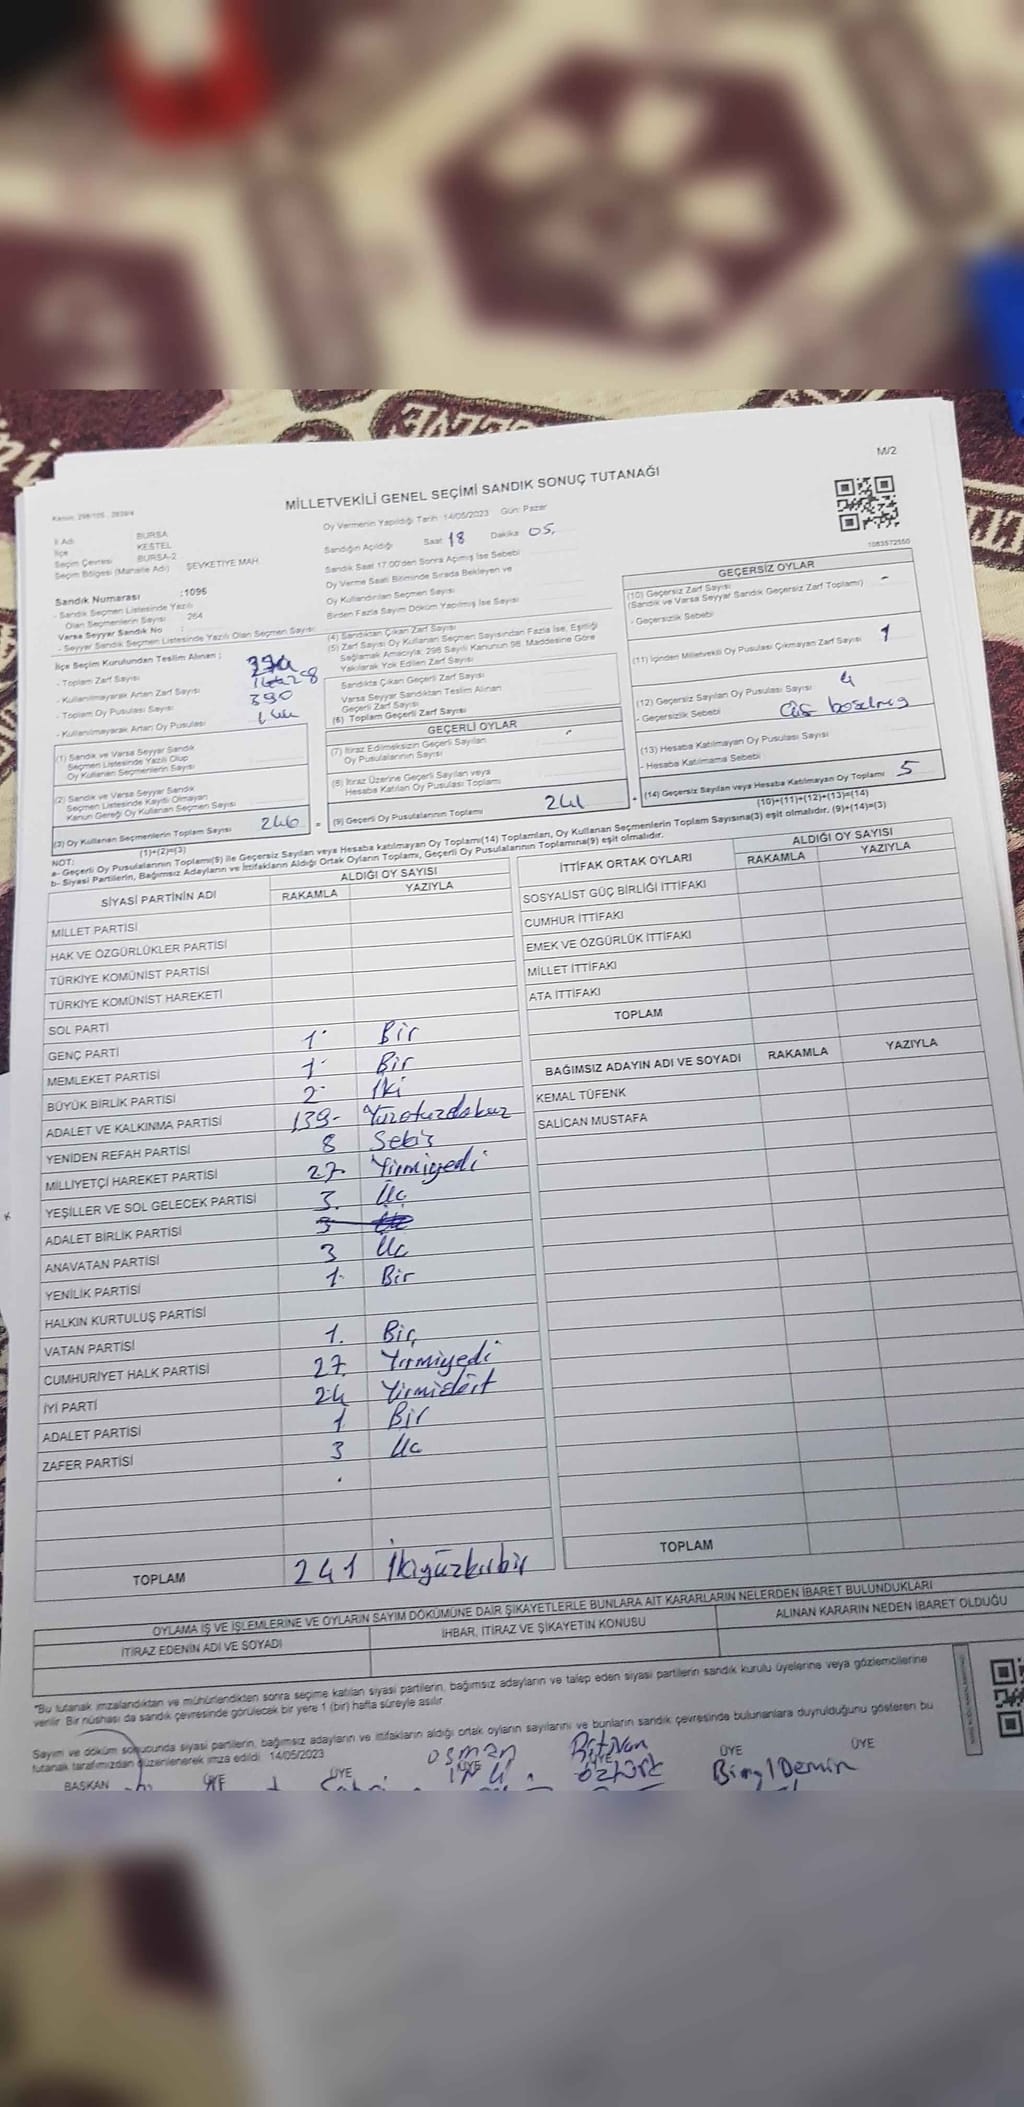 M/2
MİLLETVEKİLİ GENEL SEÇİMİ SANDIK SONUÇ TUTANAĞI
Oy Vermenin Yapıldığı Tarih :14/05/2023 Gün: Pazar
İl Adı BURSA
İlçe KESTEL
Seçim Çevresi BURSA-2
Seçim Bölgesi (Mahalle Adı) ŞEVKETİYE MAH.
Sandık Numarası :1096
- Sandık Seçmen Listesinde Yazılı
Olan Seçmenlerin Sayısı : 264
Varsa Seyyar Sandık No :
- Seyyar Sandık Seçmen Listesinde Yazılı Olan Seçmen Sayısı:
Sandığın Açıldığı Saat 18 Dakika 05.
Sandık Saat 17:00'den Sonra Açılmış İse Sebebi
Oy Verme Saati Bitiminde Sırada Bekleyen ve
Oy Kullandırılan Seçmen Sayısı
Birden Fazla Sayım Döküm Yapılmış İse Sayısı
1083572550
İlçe Seçim Kurulundan Teslim Alınan ;
- Toplam Zarf Sayısı
- Kullanılmayarak Artan Zarf Sayısı
- Toplam Oy Pusulası Sayısı 390
- Kullanılmayarak Artan Oy Pusulası 144
(1) Sandık ve Varsa Seyyar Sandık
Seçmen Listesinde Yazılı Olup
Oy Kullanan Seçmenlerin Sayısı
(2) Sandık ve Varsa Seyyar Sandık
Seçmen Listesinde Kayıtlı Olmayan
Kanun Gereği Oy Kullanan Seçmen Sayısı
(3) Oy Kullanan Seçmenlerin Toplam Sayısı 246
(1)+(2)=(3)
(4) Sandıktan Çıkan Zarf Sayısı
(5) Zarf Sayısı Oy Kullanan Seçmen Sayısından Fazla İse, Eşitliği
Sağlamak Amacıyla; 298 Sayılı Kanunun 98. Maddesine Göre
Yakılarak Yok Edilen Zarf Sayısı
Sandıkta Çıkan Geçerli Zarf Sayısı
Varsa Seyyar Sandıktan Teslim Alınan
Geçerli Zarf Sayısı
(6) Toplam Geçerli Zarf Sayısı
GEÇERLİ OYLAR
(7) İtiraz Edilmeksizin Geçerli Sayılan
Oy Pusulalarının Sayısı
(8) İtiraz Üzerine Geçerli Sayılan veya
Hesaba Katılan Oy Pusulası Toplamı
(9) Geçerli Oy Pusulalarının Toplamı 241
GEÇERSİZ OYLAR
(10) Geçersiz Zarf Sayısı -
(Sandık ve Varsa Seyyar Sandık Geçersiz Zarf Toplamı)
- Geçersizlik Sebebi
(11) İçinden Milletvekili Oy Pusulası Çıkmayan Zarf Sayısı 1
(12) Geçersiz Sayılan Oy Pusulası Sayısı 4
- Geçersizlik Sebebi
(13) Hesaba Katılmayan Oy Pusulası Sayısı
- Hesaba Katılmama Sebebi
(14) Geçersiz Sayılan veya Hesaba Katılmayan Oy Toplamı 5
(10)+(11)+(12)+(13)=(14)
NOT:
a- Geçerli Oy Pusulalarının Toplamı(9) ile Geçersiz Sayılan veya Hesaba katılmayan Oy Toplamı(14) Toplamları, Oy Kullanan Seçmenlerin Toplam Sayısına(3) eşit olmalıdır. (9)+(14)=(3)
b- Siyasi Partilerin, Bağımsız Adayların ve İttifakların Aldığı Ortak Oyların Toplamı, Geçerli Oy Pusulalarının Toplamına(9) eşit olmalıdır.
SİYASİ PARTİNİN ADI ALDIĞI OY SAYISI
RAKAMLA YAZIYLA
MİLLET PARTİSİ
HAK VE ÖZGÜRLÜKLER PARTİSİ
TÜRKİYE KOMÜNİST PARTİSİ
TÜRKİYE KOMÜNİST HAREKETİ
SOL PARTİ
GENÇ PARTİ 1 Bir
MEMLEKET PARTİSİ 1 Bir
BÜYÜK BİRLİK PARTİSİ 2 İki
ADALET VE KALKINMA PARTİSİ 139 Yüzotuzdokuz
YENİDEN REFAH PARTİSİ 8 Sekiz
MİLLİYETÇİ HAREKET PARTİSİ 27 Yirmiyedi
YEŞİLLER VE SOL GELECEK PARTİSİ 3 Üç
ADALET BİRLİK PARTİSİ 3
ANAVATAN PARTİSİ 3 Üç
YENİLİK PARTİSİ 1 Bir
HALKIN KURTULUŞ PARTİSİ
VATAN PARTİSİ 1. Bir
CUMHURİYET HALK PARTİSİ 27. Yirmiyedi
İYİ PARTİ 24 Yirmidört
ADALET PARTİSİ 1 Bir
ZAFER PARTİSİ 3 Üç
TOPLAM 241 İkiyüzkırkbir
İTTİFAK ORTAK OYLARI ALDIĞI OY SAYISI
RAKAMLA YAZIYLA
SOSYALİST GÜÇ BİRLİĞİ İTTİFAKI
CUMHUR İTTİFAKI
EMEK VE ÖZGÜRLÜK İTTİFAKI
MİLLET İTTİFAKI
ATA İTTİFAKI
TOPLAM
BAĞIMSIZ ADAYIN ADI VE SOYADI RAKAMLA YAZIYLA
KEMAL TÜFENK
SALİCAN MUSTAFA
TOPLAM
OYLAMA İŞ VE İŞLEMLERİNE VE OYLARIN SAYIM DÖKÜMÜNE DAİR ŞİKAYETLERLE BUNLARA AİT KARARLARIN NELERDEN İBARET BULUNDUKLARI
İTİRAZ EDENİN ADI VE SOYADI İHBAR, İTİRAZ VE ŞİKAYETİN KONUSU ALINAN KARARIN NEDEN İBARET OLDUĞU
"Bu tutanak imzalandıktan ve mühürlendikten sonra seçime katılan siyasi partilerin, bağımsız adayların ve talep eden siyasi partilerin sandık kurulu üyelerine veya gözlemcilerine
verilir. Bir nüshası da sandık çevresinde görülecek bir yere 1 (bir) hafta süreyle asılır.
Sayım ve döküm sonucunda siyasi partilerin, bağımsız adayların ve ittifakların aldığı ortak oyların sayılarını ve bunların sandık çevresinde bulunanlara duyrulduğunu gösteren bu
tutanak tarafımızdan düzenlenerek imza edildi. 14/05/2023
BAŞKAN ÜYE ÜYE ÜYE ÜYE ÜYE ÜYE
Osman
Öztürk
Demin